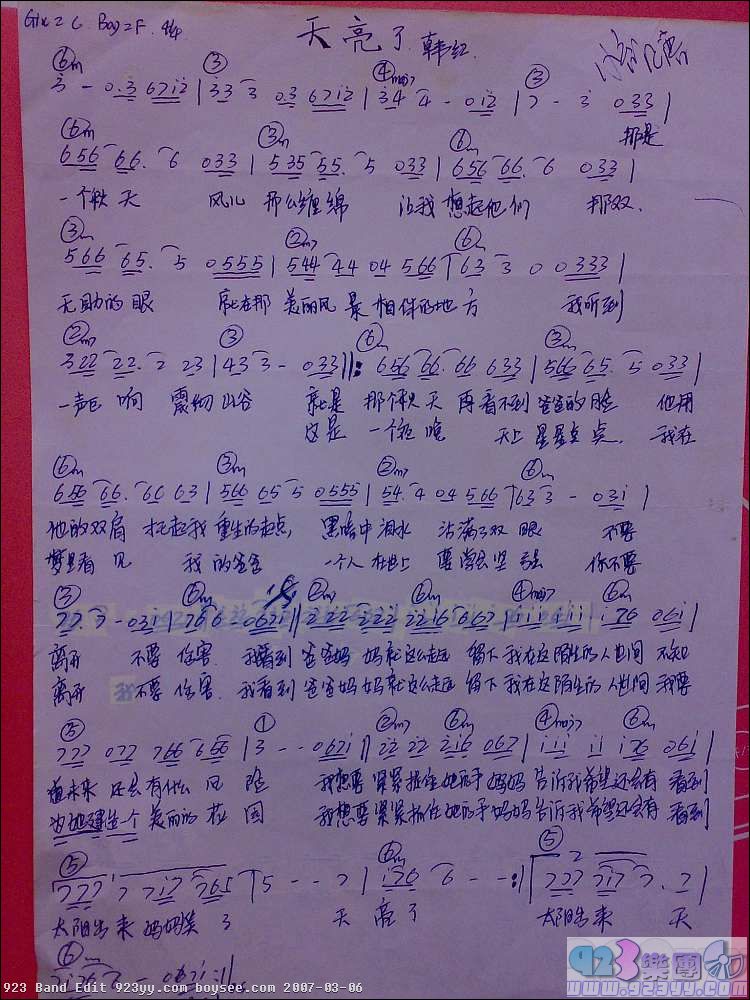 Girl=C Boy=F 4/4
天亮了 韩红
⑥m ③ ④maj7 ③
3 - 0.3 671̇2̇ | 33 3 0.3 671̇2̇ | 34 4 - 01̇2̇ | 7 - 3 033 |
那是
⑥m ③m ⑥m
656 66. 6 033 | 535 55. 5 033 | 656 66. 6 033 |
一个秋天 风儿 那么缠绵 让我 想起他们 那双
③m ②m7 ⑥m
566 65. 5 0555 | 544 44 04 566 | 63 3 0 0 333 |
无助的眼 就在那 美丽风景 相伴的地方 我听到
②m7 ③ ⑥m ③m
322 22. 2 23 | 43 3 - 033 ||: 656 66. 66 633 | 566 65. 5 033 |
一声巨响 震彻山谷 就是 那个秋天 再看不到 爸爸的脸 他用
这是 一个夜晚 天上 星星点点 我在
⑥m ③m ②m7 ⑥m
656 66. 66 63 | 566 65 5 0555 | 54 4 04 566 | 63 3 - 031̇ |
他的双肩 托起我 重生的起点, 黑暗中 泪水 沾满了双眼 不要
梦里看见 我的爸爸 一个人在世上 要学会坚强 你不要
③ ⑥m ②m7 ⑥m ④maj7 ⑥m
77 7 - 031̇ | 1̇76 6 0671̇ || 2̇2̇2̇ 2̇2̇2̇ 2̇2̇1̇6 067 | 1̇1̇1̇ 1̇1̇1̇ 1̇76 061̇ |
离开 不要 伤害 我看到 爸爸妈妈就这么走远 留下我在这陌生的人世间 不知
离开 我不要 伤害 我看到 爸爸妈妈就这么走远 留下我在这陌生的人世间 我要
⑤ ① ②m7 ⑥m ④maj7 ⑥m
777 077 766 666 | 3 - - 0671̇ || 2̇2̇ 2̇2̇ 2̇1̇6 067 | 1̇1̇1̇ 1̇1̇ 1̇76 061̇ |
道未来 还会有什么风险 我想要 紧紧抓住她的手 妈妈告诉我希望还会有 看到
为她建造一个 美丽的花园 我想要 紧紧抓住她的手 妈妈告诉我希望还会有 看到
⑤ ⑥m ⑤
777 7 71̇7 765 | 5 - - 7 | 1̇76 6 - - :|| 777 717 7. 7 |
太阳出来 妈妈笑了 天 亮了 太阳出来 天
⑥m
923樂團
www.923yy.com
923 Band Edit 923yy.com boysee.com 2007-03-06